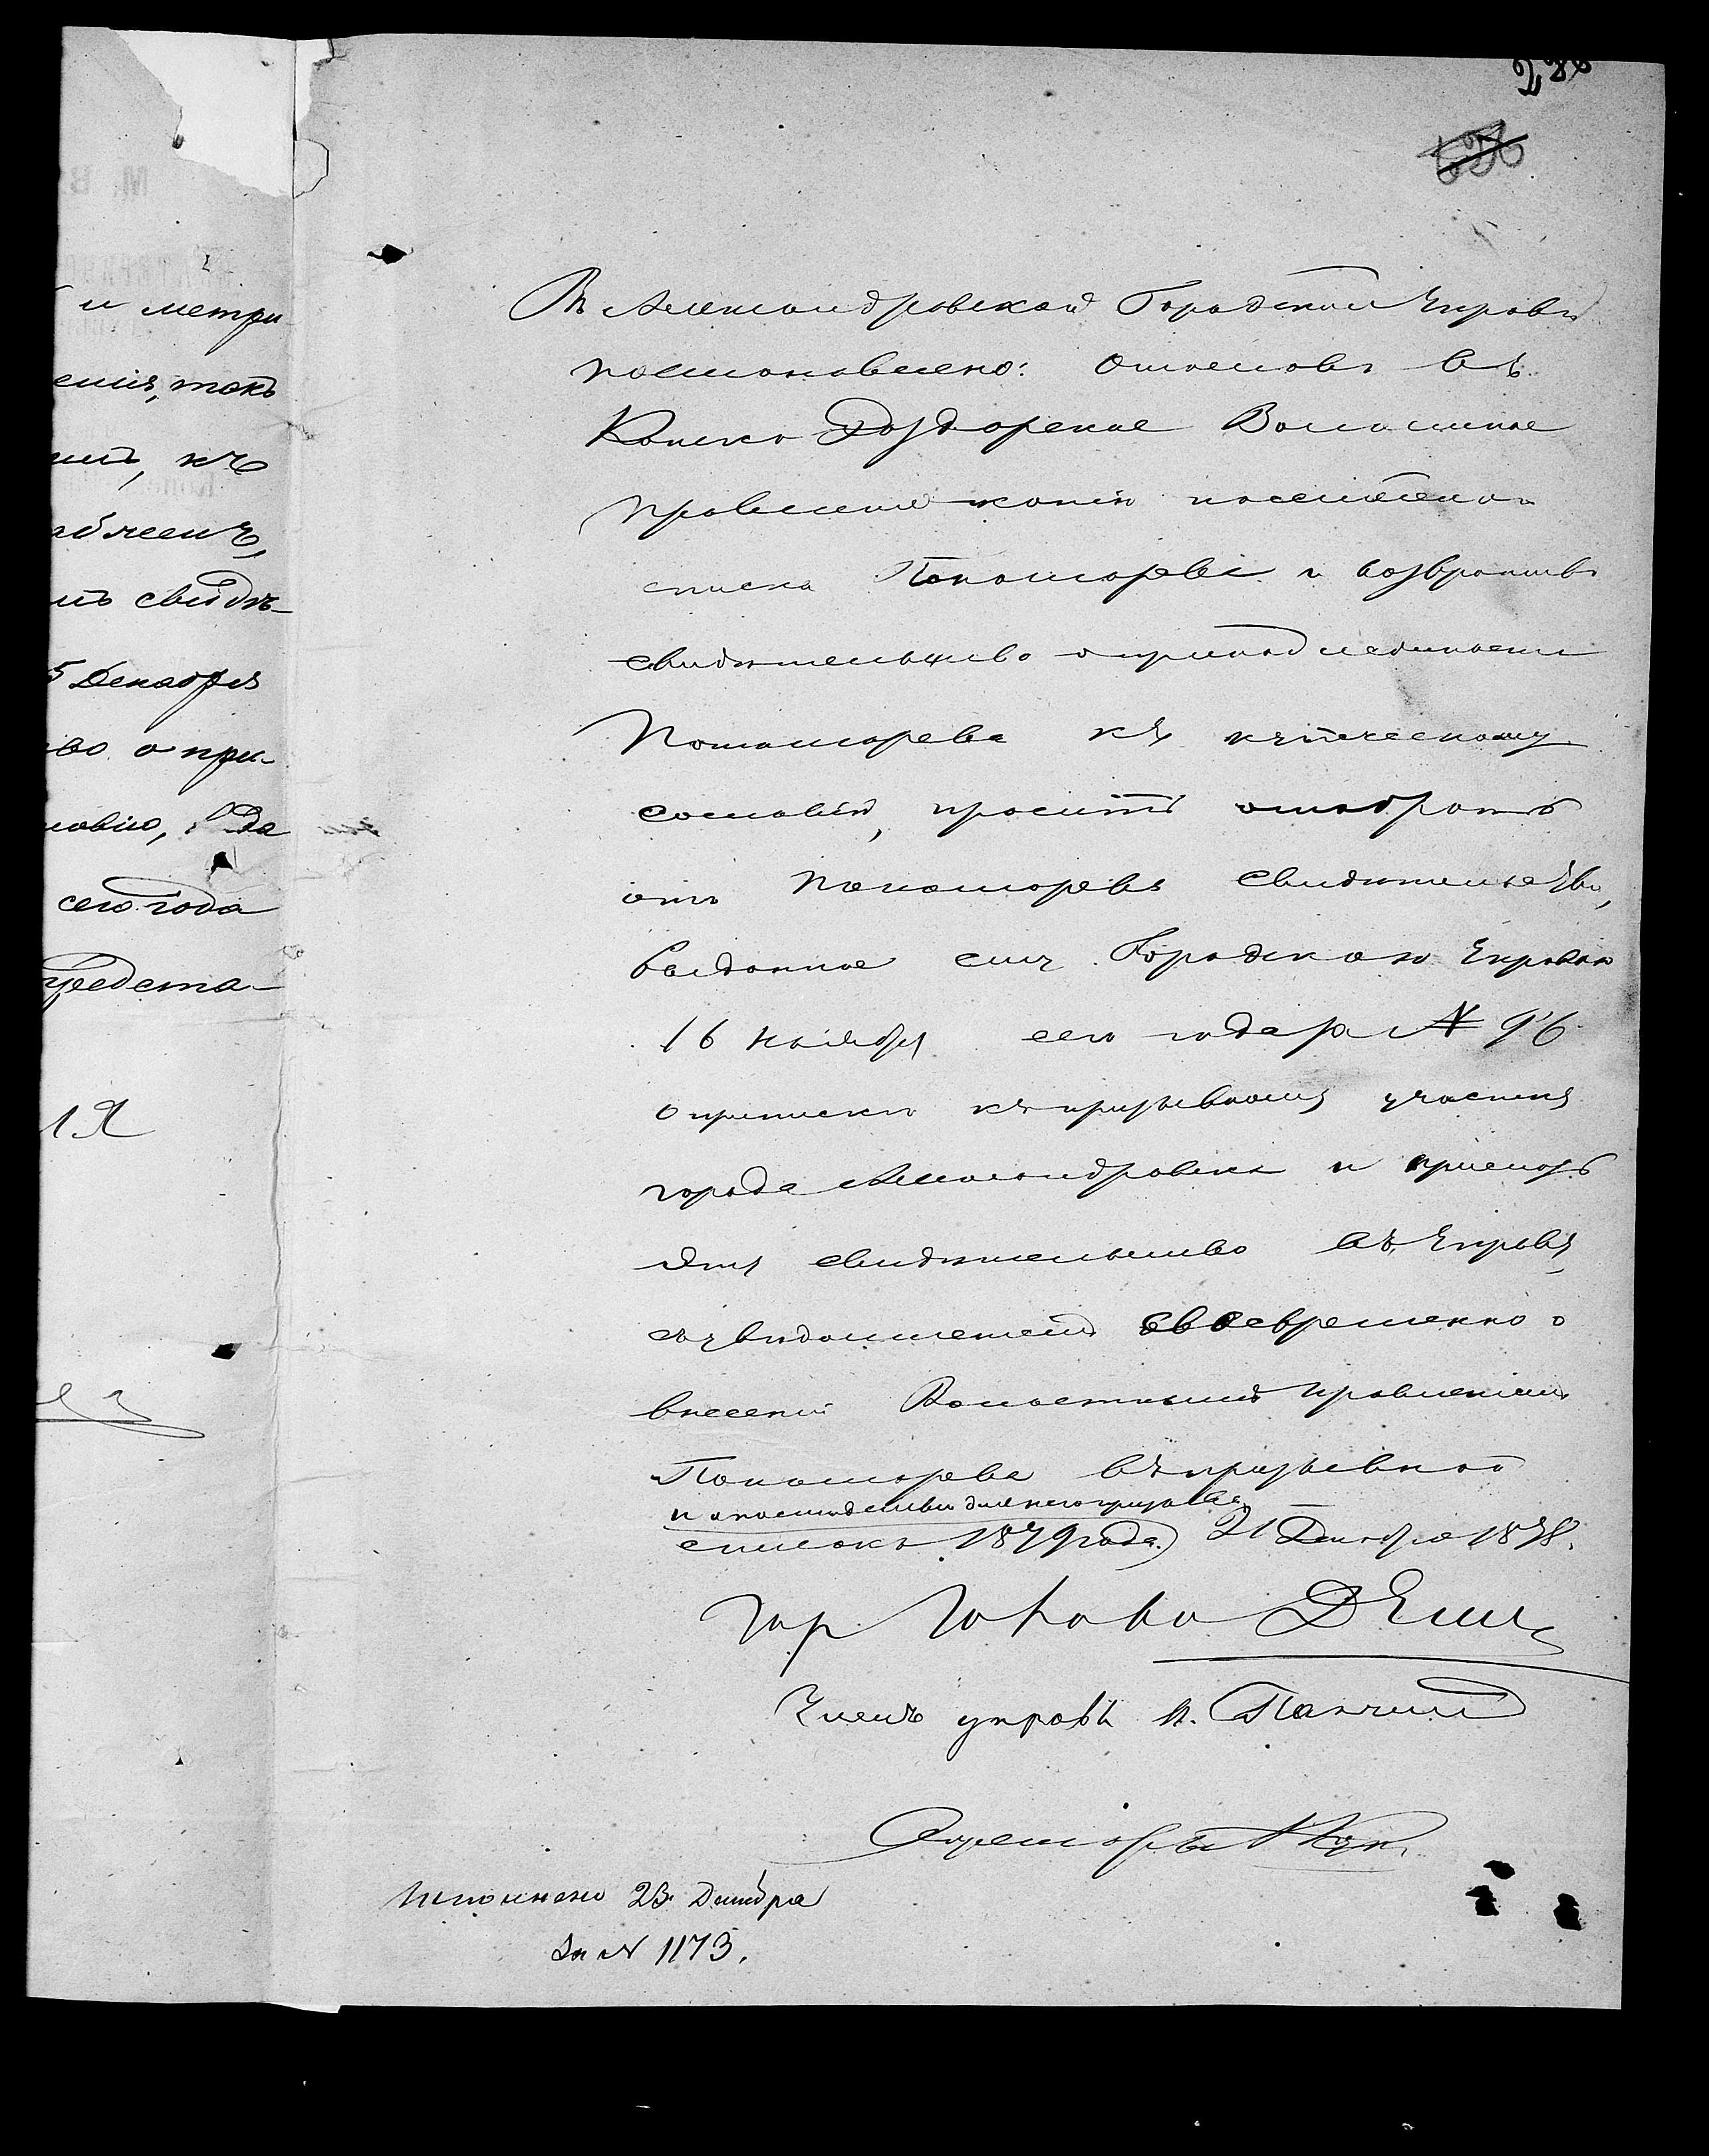 и метри-
ения, такъ
къ
свидѣ-
5 Декабря
во о при-
ловію,
сего года
предста-
Въ Александровской Городской Управѣ
постановлено: Отославъ въ
Конско Роздорское Волостное
правленіе копію посемейнаго
списка Пономарева и возвративъ
свидѣтельство о принадлежности
Пономарева къ купеческому
сословію, проситъ отобрать
отъ Пономарева свидѣтельство,
выданное ему Городскою Управою
16 Ноября сего года за № 96
о припискѣ къ призывному участку
города Александровска и прислать
это свидѣтельство въ Управу,
съ увѣдомленіемъ своевременно о
внесеніи Волостнымъ Правленіемъ
Пономарева въ призывной
и о послѣдствіи для него призыва
списокъ 1879 года. 21 Декабря 1878.
Гор Голова
Членъ управы
Секретарь
Исполнено 23 Декабря
За № 1173.